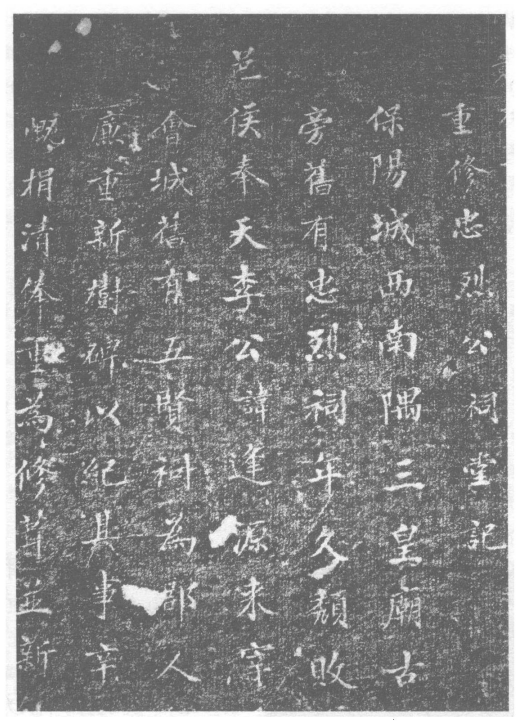 重修忠烈公祠堂記
保陽城西南隅三皇廟古
旁舊有忠烈祠年久頹敗
邑侯奉天李公諱逢源來宰
會城舊有五賢祠為郡人
重新樹碑以紀其事幸
慨捐清俸重為修葺並新